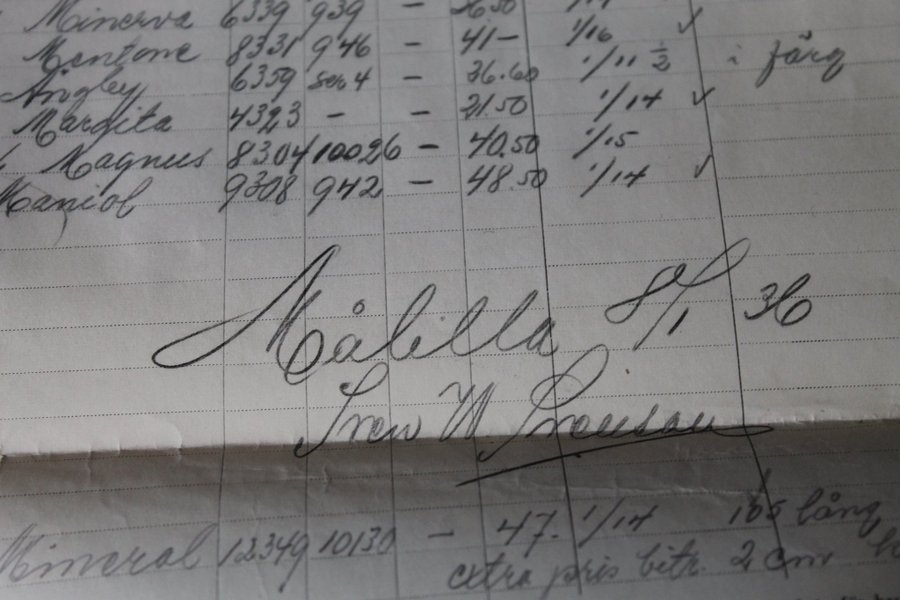 Minerva 6339 939 - 36.50 1/14 ✓
Mentone 8331 946 - 41- 1/16
Aingley 6359 - 36.60 1/11 1/2 i färg
Margita 4323 - - 31.50 1/14 ✓
Magnus 8304 10026 - 40.50 1/15
Maniol 9308 942 - 48.50 1/14 ✓
Målilla 8/1 36
Sven W Svensson
Mineral 12349 10130 - 47. 1/14 165 lång
extra pris betr. 2 cm